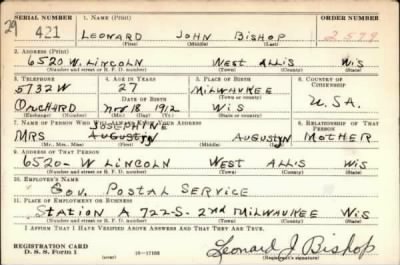 SERIAL NUMBER 1. NAME (Print) ORDER NUMBER
29 421 LEONARD JOHN BISHOP 2,579
(First) (Middle) (Last)
2. ADDRESS (Print)
6520 W. LINCOLN WEST ALLIS WIS
(Number and street or R. F. D. number) (Town) (County) (State)
3. TELEPHONE 4. AGE IN YEARS 5. PLACE OF BIRTH 6. COUNTRY OF CITIZENSHIP
5732W 27 MILWAUKEE
DATE OF BIRTH (Town or county)
ORCHARD Nov 18 1912 WIS U.S.A.
(Exchange) (Number) (Mo.) (Day) (Yr.) (State or country)
7. NAME OF PERSON WHO WILL ALWAYS KNOW YOUR ADDRESS 8. RELATIONSHIP OF THAT PERSON
JOSEPHINE
MRS AUGUSTYN AUGUSTYN MOTHER
(Mr., Mrs., Miss) (First) (Middle) (Last)
9. ADDRESS OF THAT PERSON
6520- W LINCOLN WEST ALLIS WIS
(Number and street or R. F. D. number) (Town) (County) (State)
10. EMPLOYER'S NAME
GOV. POSTAL SERVICE
11. PLACE OF EMPLOYMENT OR BUSINESS
STATION A 722-S- 2ND MILWAUKEE WIS
(Number and street or R. F. D. number) (Town) (County) (State)
I AFFIRM THAT I HAVE VERIFIED ABOVE ANSWERS AND THAT THEY ARE TRUE.
REGISTRATION CARD
D. S. S. Form 1 16—17105 Leonard J Bishop
(Registrant's signature)